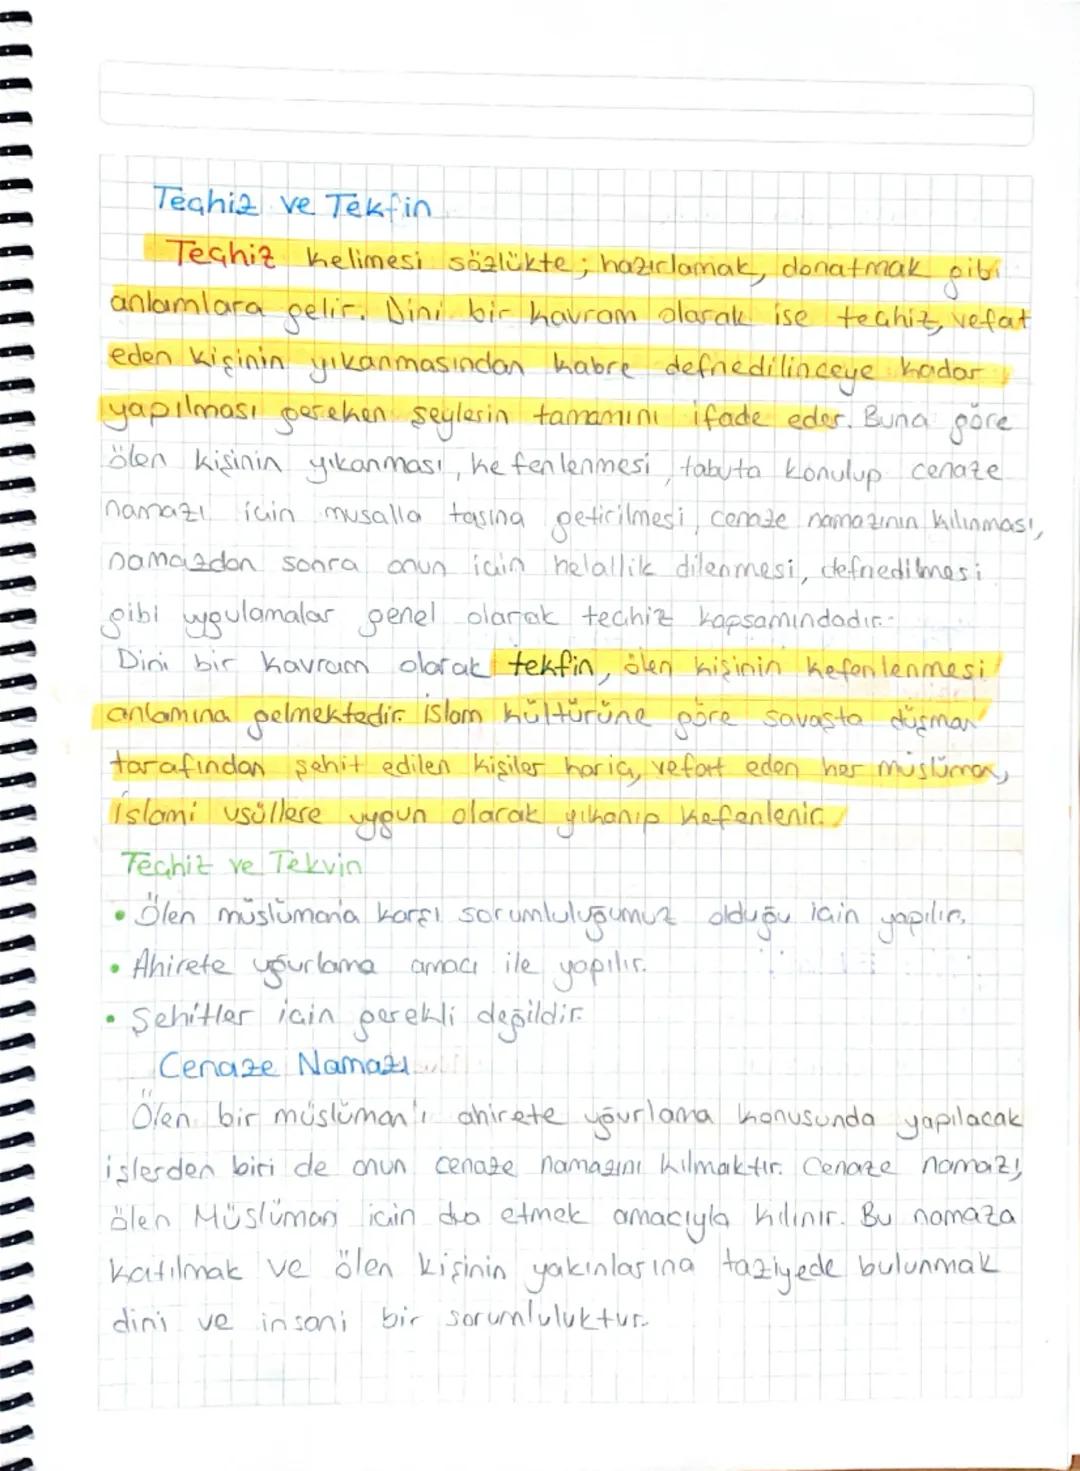 Teçhiz ve Tekfin
Teçhiz kelimesi sözlükte; hazırlamak, donatmak gibi
anlamlara gelir. Dini bir kavram olarak ise teçhiz, vefat
eden kişinin yıkanmasından kabre defnedilinceye kadar
yapılması gereken şeylerin tamamını ifade eder. Buna göre
ölen kişinin yıkanması, kefenlenmesi, tabuta konulup cenaze
namazı için musalla taşına getirilmesi, cenaze namazının kılınması,
namazdan sonra onun için helallik dilenmesi, defnedilmesi
gibi uygulamalar genel olarak teçhiz kapsamındadır.
Dini bir kavram olarak tekfin, ölen kişinin kefenlenmesi
anlamına gelmektedir. İslam kültürüne göre savaşta düşman
tarafından şehit edilen kişiler hariç, vefat eden her müslüman,
islami usüllere uygun olarak yıkanıp kefenlenir.
Teçhiz ve Tekvin
• Ölen müslümana karşı sorumluluğumuz olduğu için yapılır.
• Ahirete uğurlama amacı ile yapılır.
• Şehitler için gerekli değildir.
Cenaze Namazı
Ölen bir müslüman'ı ahirete uğurlama konusunda yapılacak
işlerden biri de onun cenaze namazını kılmaktır. Cenaze namazı,
ölen Müslüman için dua etmek amacıyla kılınır. Bu namaza
katılmak ve ölen kişinin yakınlarına taziyede bulunmak
dini ve insani bir sorumluluktur.